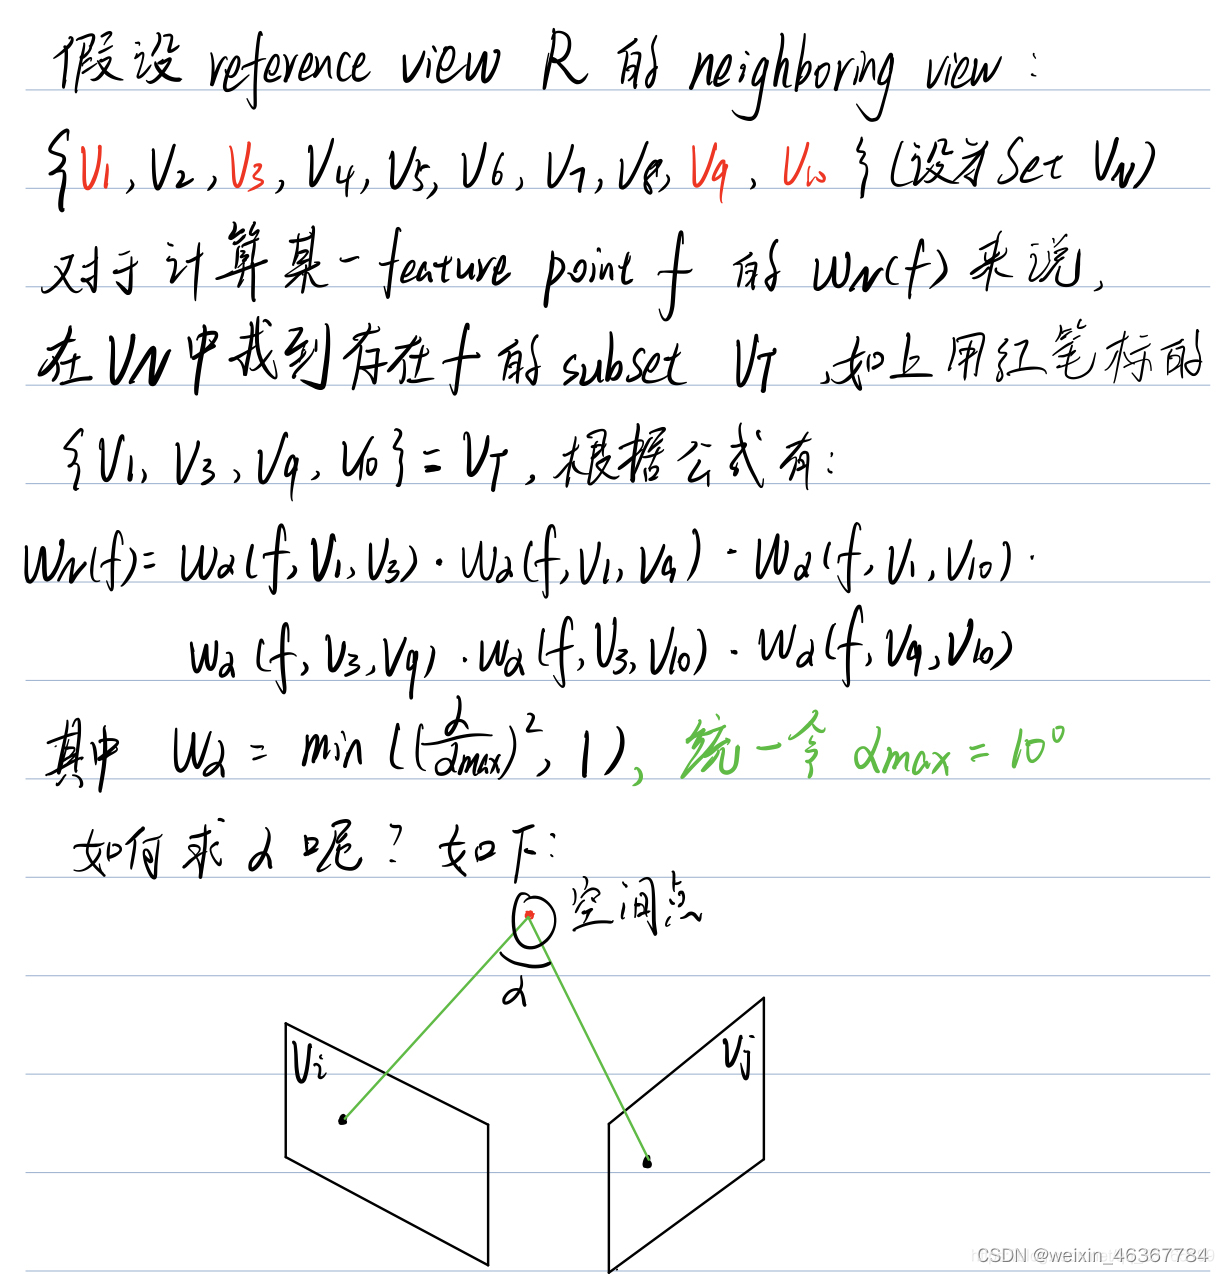 假设 reference view R 的 neighboring view :
{V1, V2, V3, V4, V5, V6, V7, V8, V9, V10 } (设为 Set VN)
对于计算某一 feature point f 的 WN(f) 来说,
在 VN 中找到存在 f 的 subset VT ,如上用红笔标的
{V1, V3, V9, V10} = VT , 根据公式有:
WN(f)= Wα(f, V1, V3) · Wα(f, V1, V9) · Wα(f, V1, V10) ·
Wα (f, V3, V9) · Wα (f, V3, V10) · Wα (f, V9, V10)
其中 Wα = min ((α/αmax)², 1), 统一令 αmax = 10°
如何求 α 呢? 如下:
空间点
α
Vi
Vj
CSDN @weixin_46367784